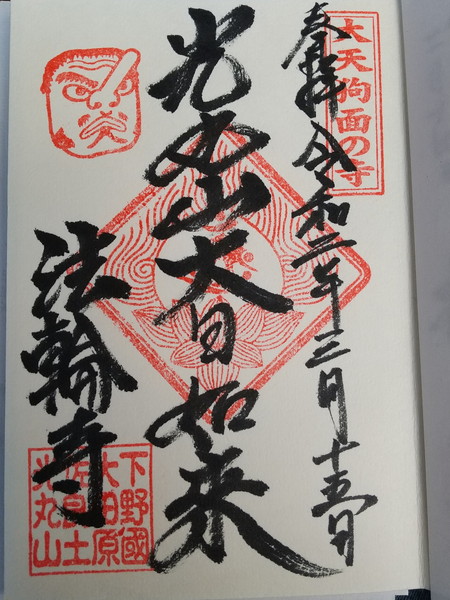 大天狗面の寺
奉拝 令和二年三月十五日
光丸山大日如来
法輪寺
下野國
大田原
佐良土
光丸山